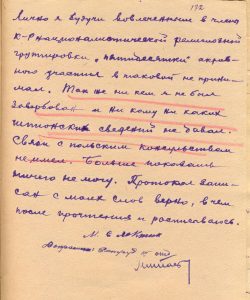 192
Лично я будучи вовлеченным в члена
к-р националистической религиозной
группировки „пятидесятки" актив-
ного участия в таковой не прини-
мал. Так же ни кем я не был
завербован и ни кому ни каких
шпионских сведений не давал.
Связи с польским консульством
не имел. Больше показать
ничего не могу. Протокол запи-
сан с моих слов верно, в чем
после прочтения и расписываюсь.
Допросил: